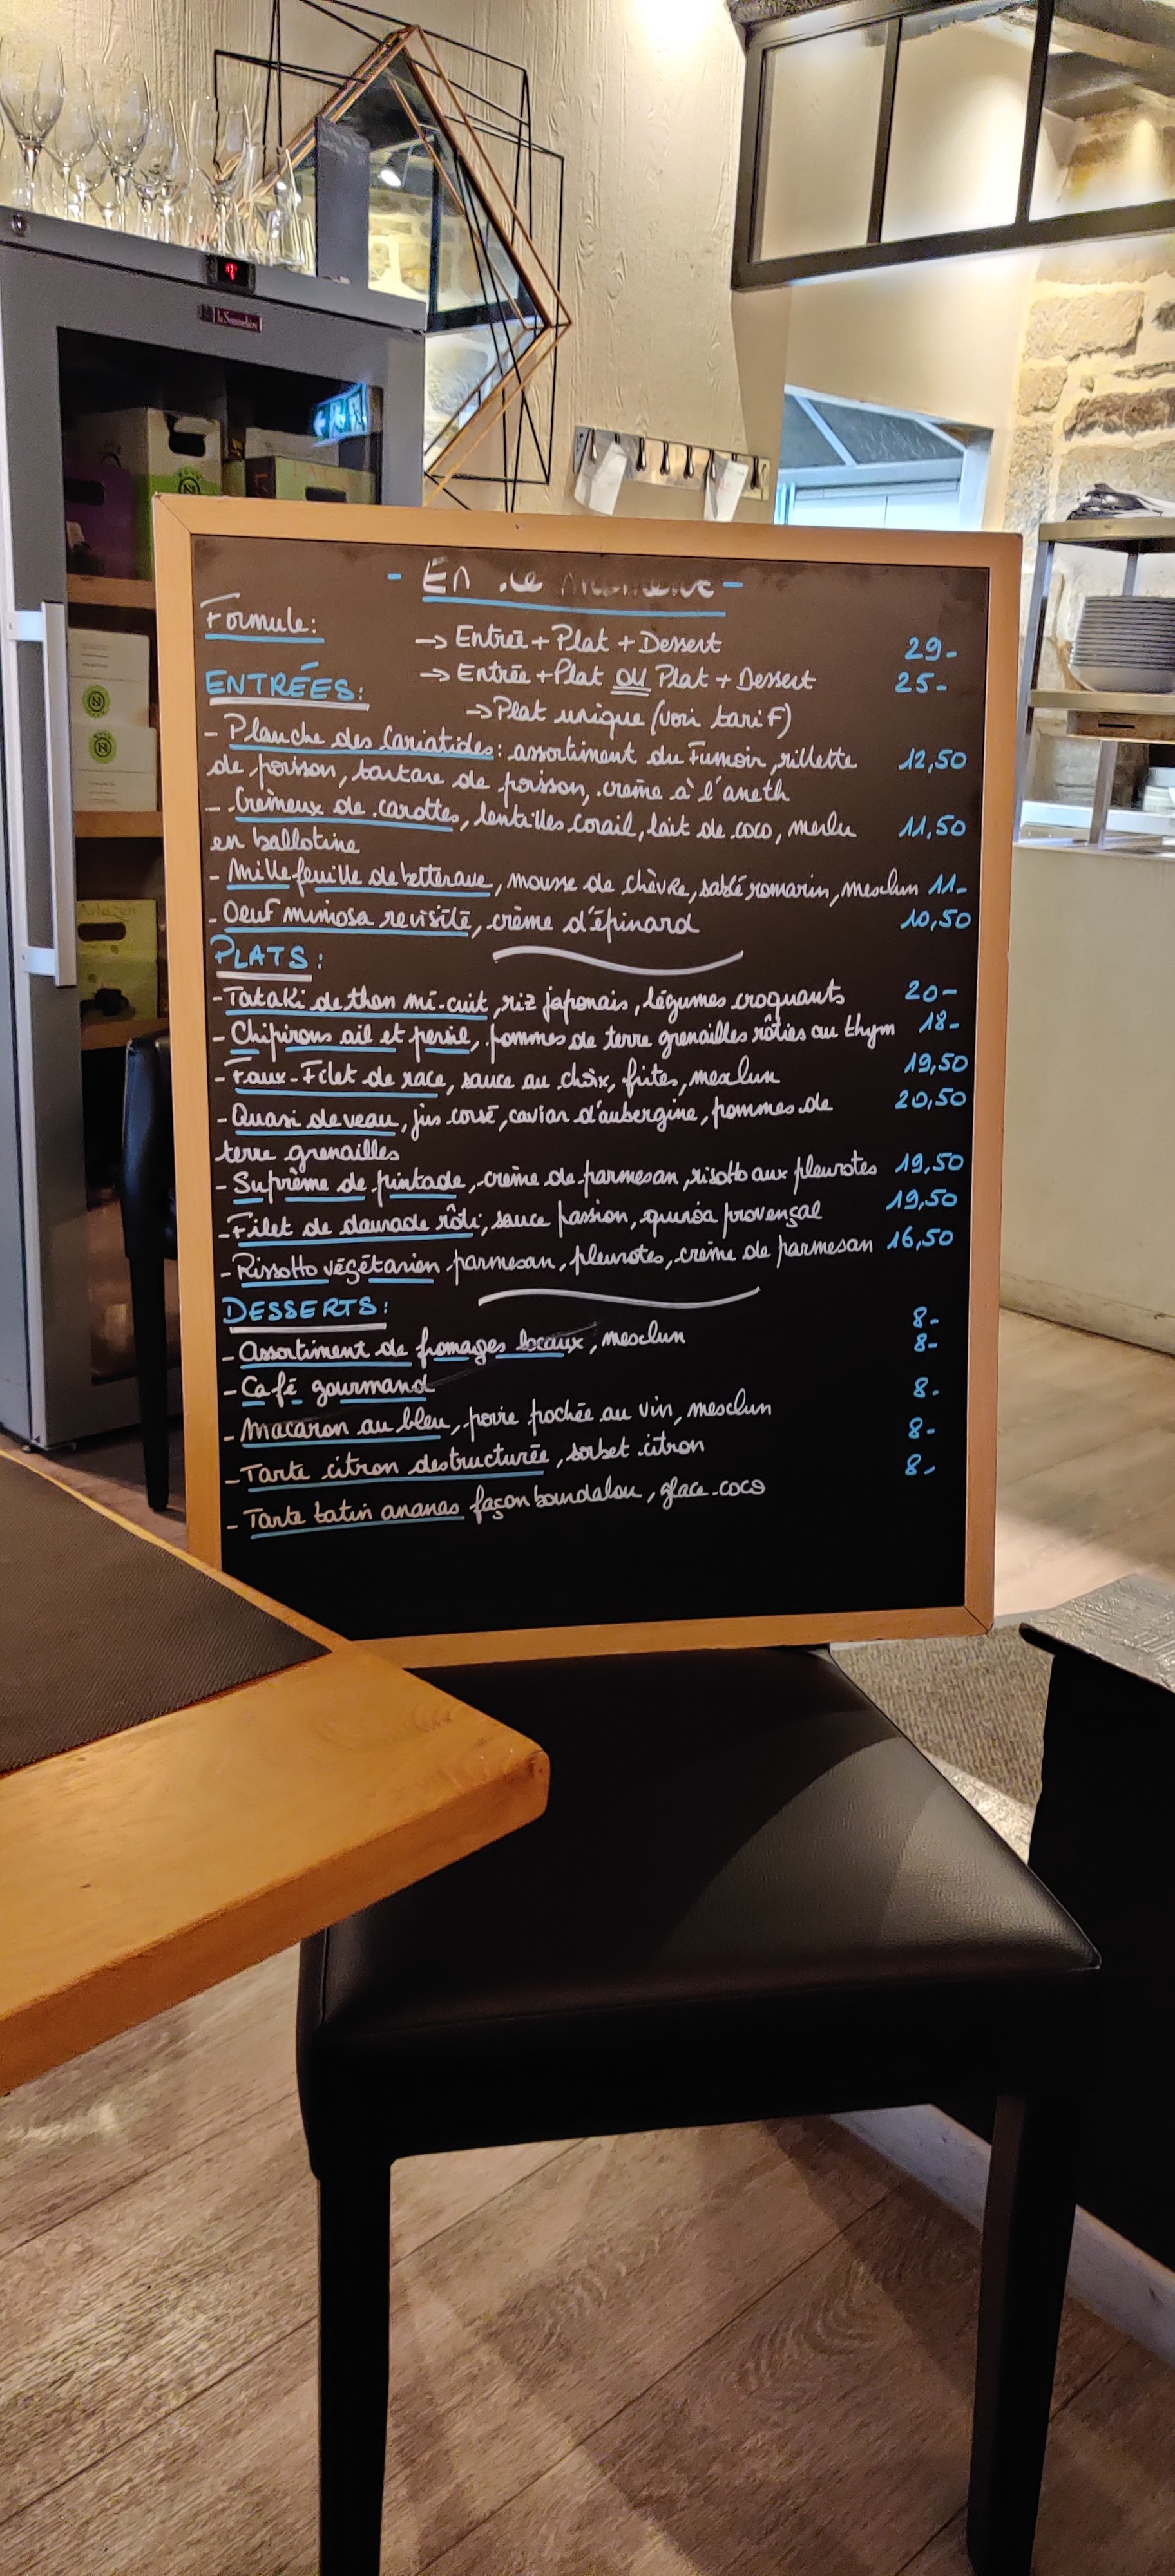 la Sommelière
- En ce moment -
Formule:
→ Entrée + Plat + Dessert 29-
→ Entrée + Plat OU Plat + Dessert 25-
→ Plat unique (voir tarif)
ENTRÉES:
- Planche des Cariatides: assortiment du Fumoir, rillette 12,50
de poisson, tartare de poisson, crème à l'aneth
- Crèmeux de carottes, lentilles corail, lait de coco, merlu 11,50
en ballotine
- Millefeuille de betterave, mousse de chèvre, sablé romarin, mesclun 11-
- Oeuf mimosa revisité, crème d'épinard 10,50
PLATS:
- Tataki de thon mi-cuit, riz japonais, légumes croquants 20-
- Chipirons ail et persil, pommes de terre grenailles rôties au thym 18-
- Faux-Filet de race, sauce au choix, frites, mesclun 19,50
- Quasi de veau, jus corsé, caviar d'aubergine, pommes de 20,50
terre grenailles
- Suprême de pintade, crème de parmesan, risotto aux pleurotes 19,50
- Filet de daurade rôti, sauce passion, quinoa provençal 19,50
- Rissotto végétarien parmesan, pleurotes, crème de parmesan 16,50
DESSERTS:
- Assortiment de fromages locaux, mesclun 8-
- Café gourmand 8-
- Macaron au bleu, poire pochée au vin, mesclun 8-
- Tarte citron destructurée, sorbet citron 8-
- Tarte tatin ananas façon bourdalou, glace coco 8-